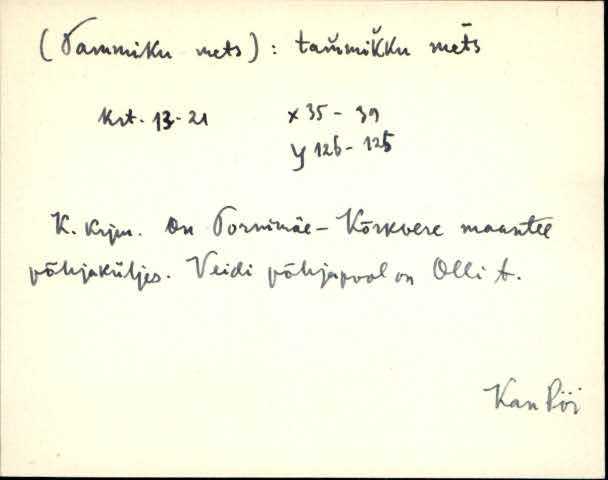 (Tammiku mets) : tam̆mik̆ku mēts
Krt. 13-21 x 35 - 39
y 126 - 125
K. Krjm. On Tornimäe - Kõrkvere maantee
põhjaküljes. Veidi põhjapool on Olli t.
Kan Pöi